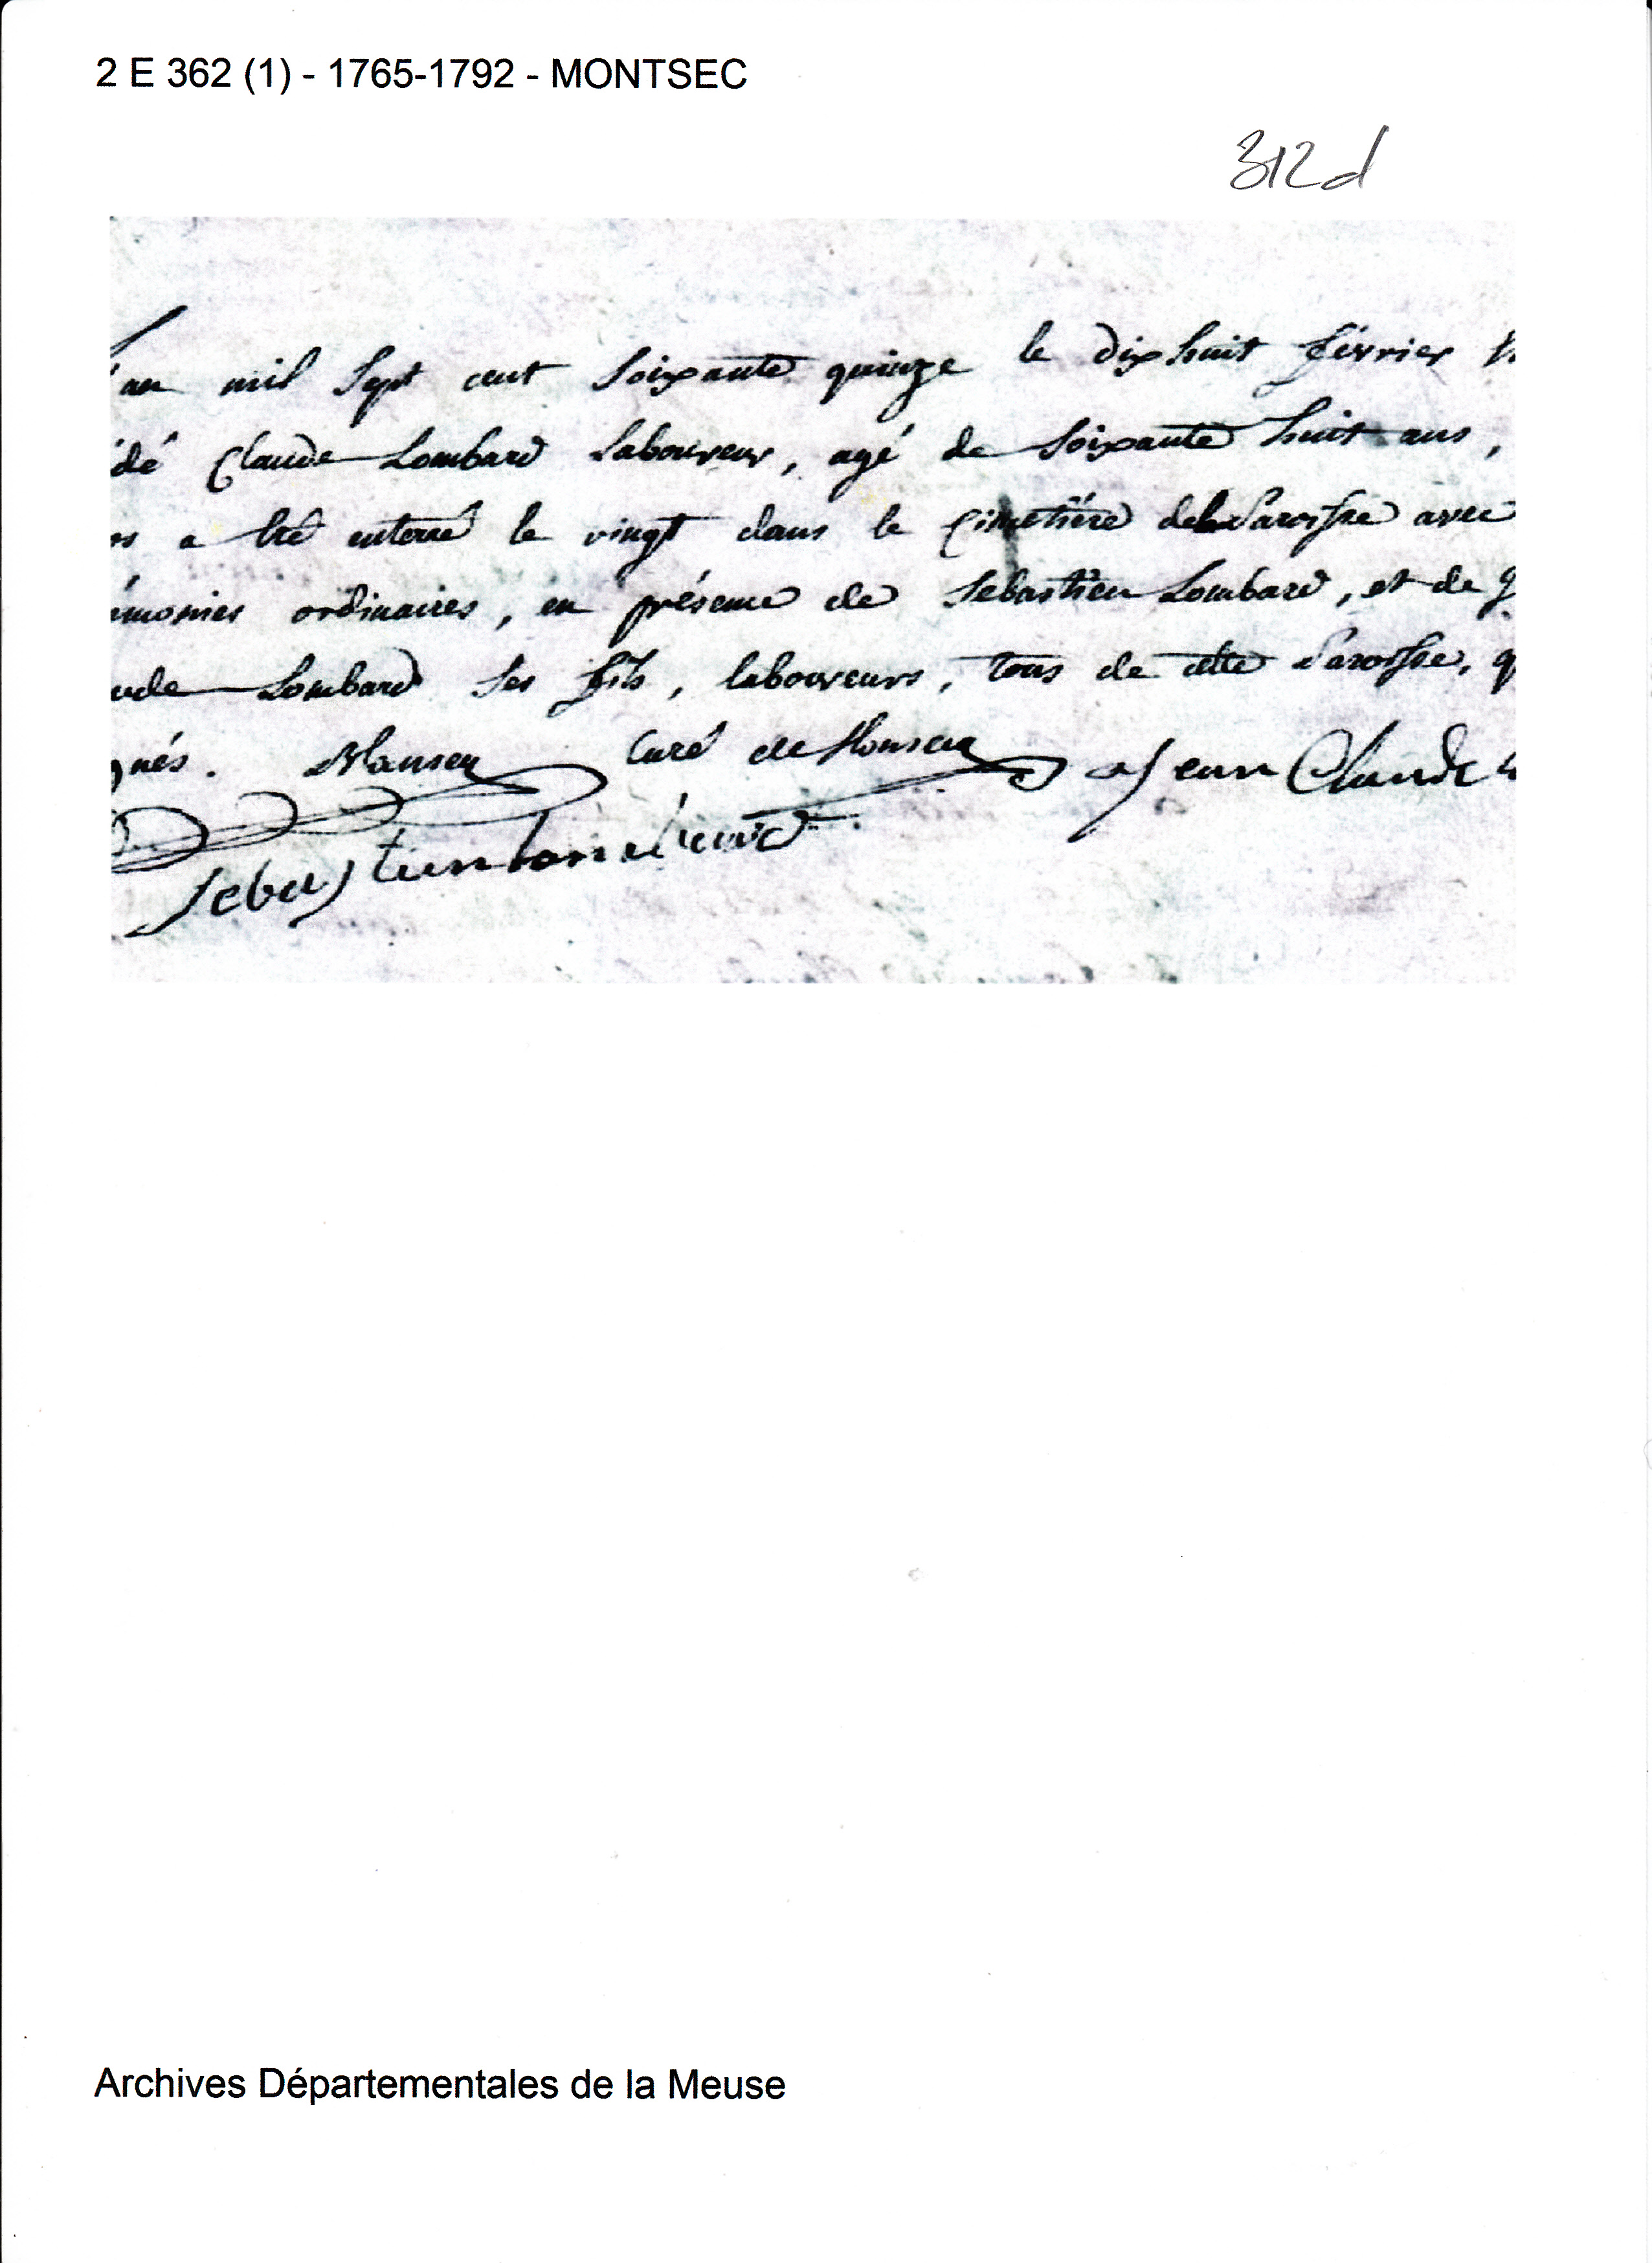 2 E 362 (1) - 1765-1792 - MONTSEC
312d
l'an mil Sept cent Soixante quinze le dix huit fevrier
dé Claude Lombard Laboureur, agé de Soixante huit ans,
rs a été enterré le vingt dans le Cimetière de la Paroisse avec
émonies ordinaires, en présence de Sebastien Lombard, et de
ude Lombard Ses fils, laboureurs, tous de cette Paroisse, q
gnés. Curé de Jean Claude
Sebastien
Archives Départementales de la Meuse